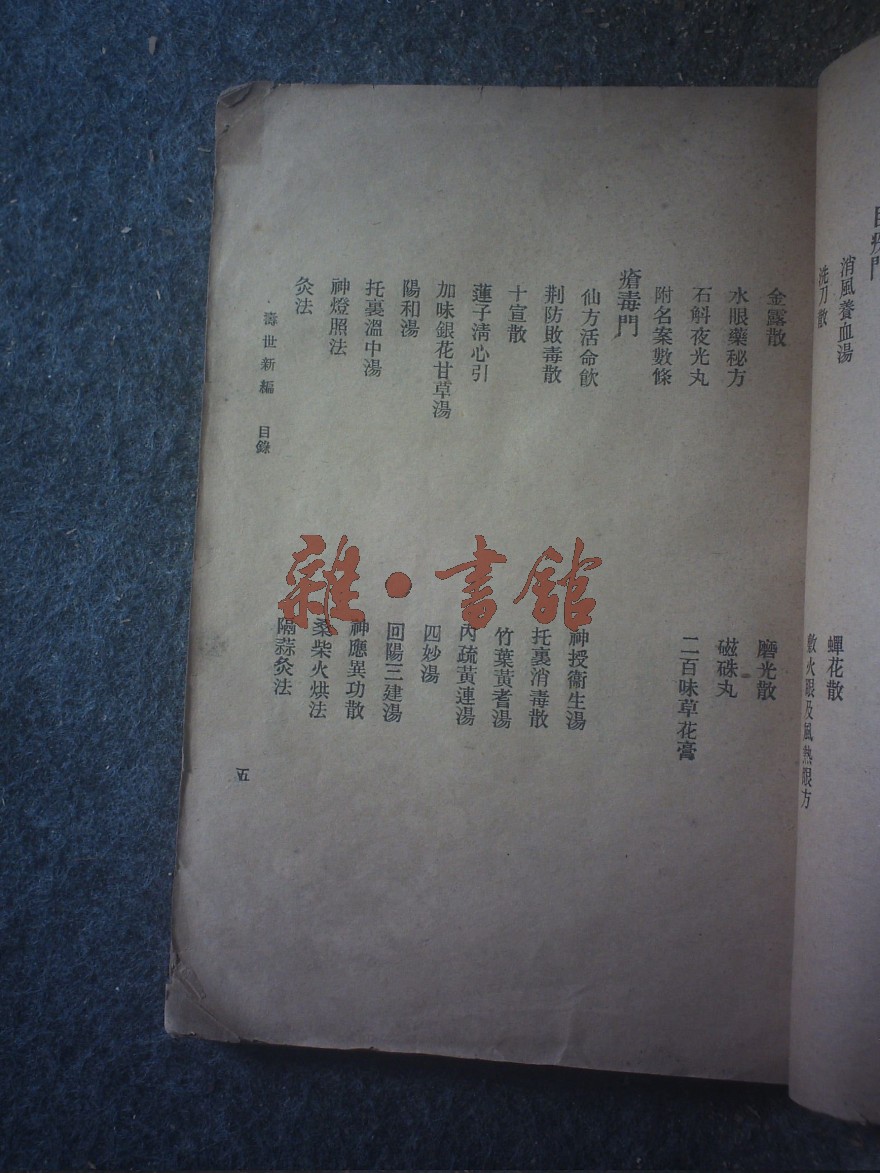 消風養血湯
蟬花散
洗刀散
敷火眼及風熱眼方
金露散
磨光散
水眼藥秘方
磁硃丸
石斛夜光丸
二百味草花膏
附名案數條
瘡毒門
仙方活命飲
神授衞生湯
荆防敗毒散
托裏消毒散
十宣散
竹葉黃耆湯
蓮子淸心引
內疏黃連湯
加味銀花甘草湯
四妙湯
陽和湯
回陽三建湯
托裏溫中湯
神應異功散
神燈照法
桑柴火烘法
灸法
隔蒜灸法
壽世新編 目錄
五
雜·書舘